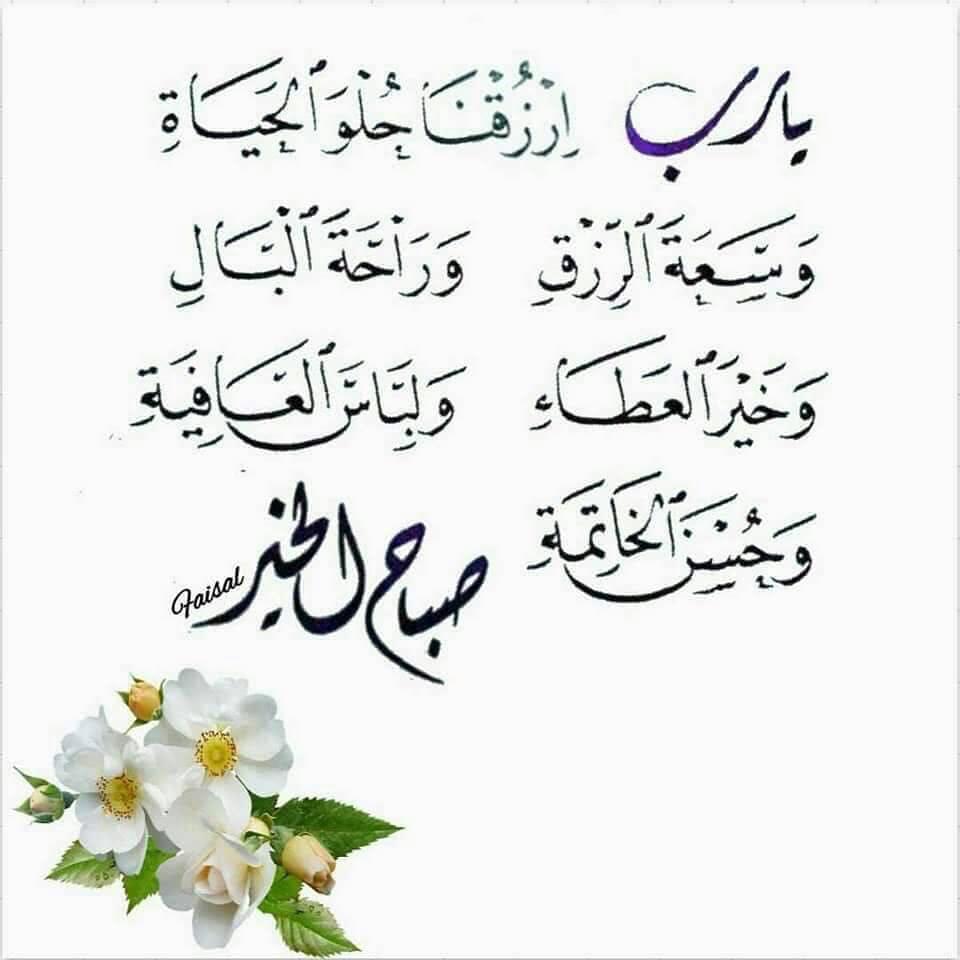 يارب اِرْزُقْنَا حُلْوَ الْحَيَاةِ
وَسِعَةَ الرِّزْقِ وَرَاحَةَ الْبَالِ
وَخَيْرَ الْعَطَاءِ وَلِبَاسَ الْعَافِيَةِ
وَحُسْنَ الْخَاتِمَةِ صباح الخير
Faisal